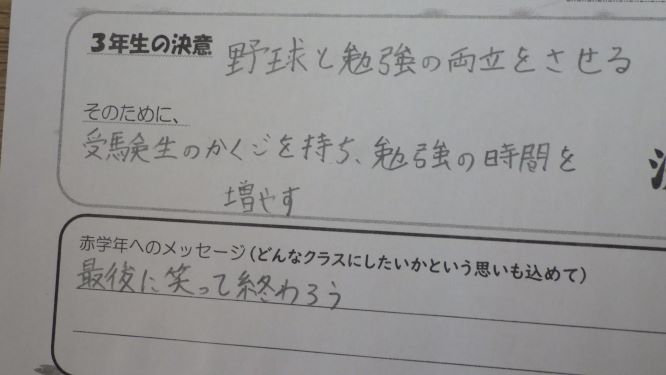 3年生の決意 野球と勉強の両立をさせる
そのために、
受験生のかくごを持ち、勉強の時間を
増やす
赤学年へのメッセージ(どんなクラスにしたいかという思いも込めて)
最後に笑って終わろう